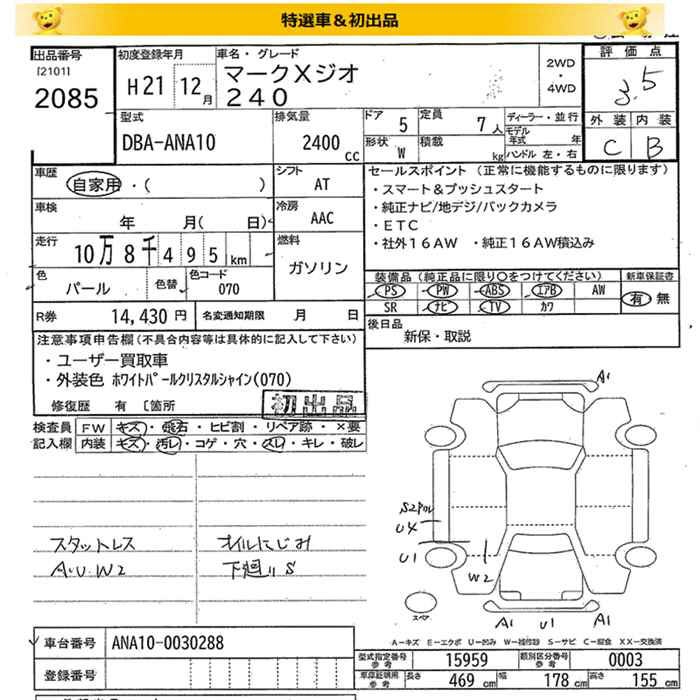 特選車＆初出品
出品番号
[2101]
2085
初度登録年月
H21 12月
車名・グレード
マークXジオ
240
2WD
・
4WD
評価点
3.5
外装 内装
C B
型式
DBA-ANA10
排気量
2400 cc
ドア 5
形状 W
定員 7人
積載 kg
ディーラー・並行
モデル年式 年
ハンドル 左・右
車歴
自家用・( )
シフト
AT
車検
年 月( 日)
冷房
AAC
走行
10万8千495km
燃料
ガソリン
色
パール
色替
色コード
070
R券 14,430円
名変通知期限 月 日
セールスポイント（正常に機能するものに限ります）
・スマート＆プッシュスタート
・純正ナビ/地デジ/バックカメラ
・ETC
・社外16AW ・純正16AW積込み
装備品（純正品に限り○をつけてください）
新車保証書
PS PW ABS エアB AW
有 無
SR ナビ TV カワ
後日品
新保・取説
注意事項申告欄(不具合内容等は具体的に記入して下さい)
・ユーザー買取車
・外装色 ホワイトパールクリスタルシャイン(070)
修復歴 有 〔箇所
初出品
検査員記入欄
FW キズ・飛石・ヒビ割・リペア跡・×要
内装 キズ・汚レ・コゲ・穴・スレ・キレ・破レ
スタットレス
A.U.W2
オイルにじみ
下廻りS
A1
S2
U4
U1
W2
スペア
A1 U1 A1
A－キズ E－エクボ U－凹み W－補修跡 S－サビ C－腐食 XX－交換済
車台番号 ANA10-0030288
登録番号
型式指定番号参考 15959
類別区分番号参考 0003
車庫証明用参考 長さ 469cm 幅 178cm 高さ 155cm